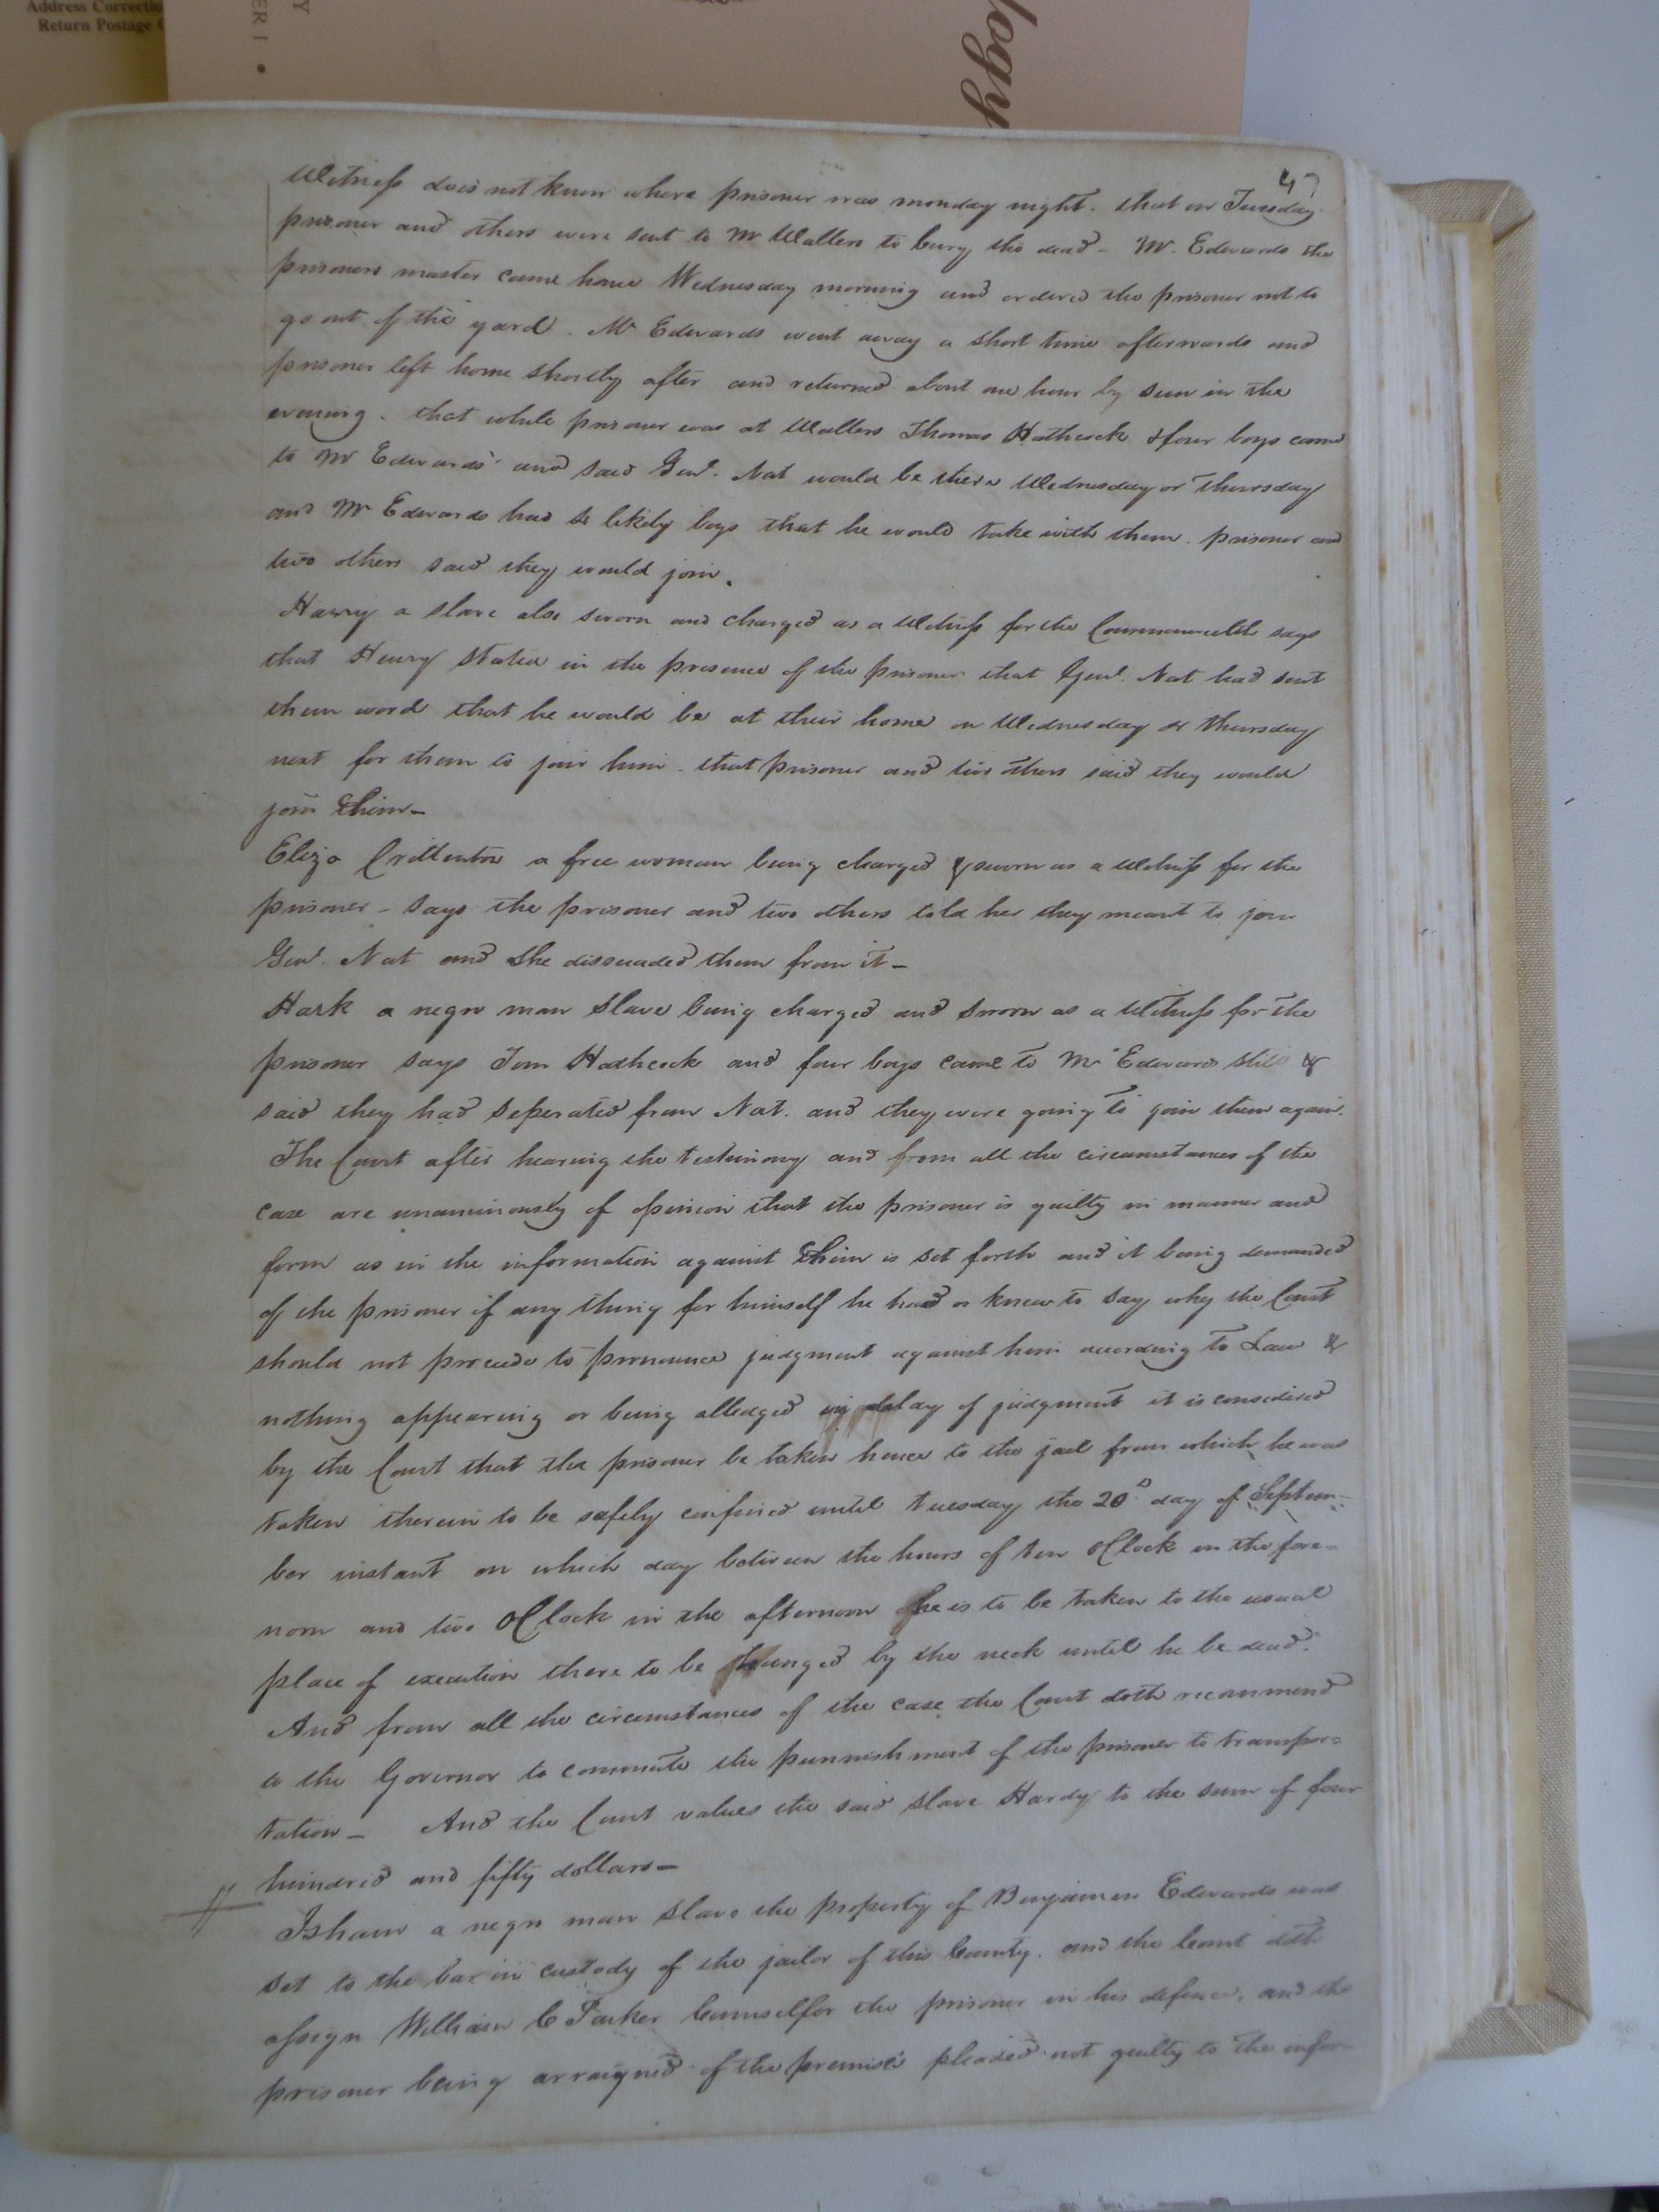 Address Correctio
Return Postage
Y
ER I •
logy
47
Witness does not know where prisoner was monday night. that on Tuesday
prisoner and others were sent to Mr Wallers to bury the dead – Mr. Edwards the
prisoners master came home Wednesday morning and ordered the prisoner not to
go out of the yard. Mr Edwards went away a short time afterwards and
prisoner left home shortly after and returned about one hour by sun in the
evening. that while prisoner was at Wallers Thomas Hathcock & four boys came
to Mr Edwards' and said Genl. Nat would be there Wednesday or Thursday
and Mr Edwards had 4 likely boys that he would take with them. prisoner and
two others said they would join.
Harry a slave also sworn and charged as a Witness for the Commonwealth says
that Henry stated in the presence of the prisoner that Genl. Nat had sent
them word that he would be at their home on Wednesday or thursday
next for them to join him. that prisoner and two others said they would
join him –
Eliza Crittenton a free woman being charged & sworn as a Witness for the
prisoner – says the prisoner and two others told her they meant to join
Genl. Nat and she dissuaded them from it –
Hark a negro man slave being charged and sworn as a Witness for the
prisoner says Tom Hathcock and four boys came to Mr Edwards still &
said they had seperated from Nat. and they were going to join them again.
The Court after hearing the testimony and from all the circumstances of the
case are unanimously of opinion that the prisoner is guilty in manner and
form as in the information against him is set forth and it being demanded
of the prisoner if any thing for himself he had or knew to say why the Court
should not proceede to pronounce judgment against him according to Law &
nothing appearing or being alledged in delay of judgment it is considered
by the Court that the prisoner be taken hence to the jail from which he was
taken therein to be safely confined until tuesday the 20th day of Septem-
ber instant on which day between the hours of ten oClock in the fore=
noon and two oClock in the afternoon he is to be taken to the usual
place of execution there to be hanged by the neck until he be dead.
And from all the circumstances of the case the Court doth recommend
to the Governor to commute the punnishment of the prisoner to transpor=
tation – And the Court values the said slave Hardy to the sum of four
hundred and fifty dollars –
Isham a negro man slave the property of Benjamin Edwards was
set to the bar in custody of the jailor of this County. and the Court doth
assign William C Parker Counsel for the prisoner in his defence, and the
prisoner being arraigned of the premises pleaded not guilty to the infor-